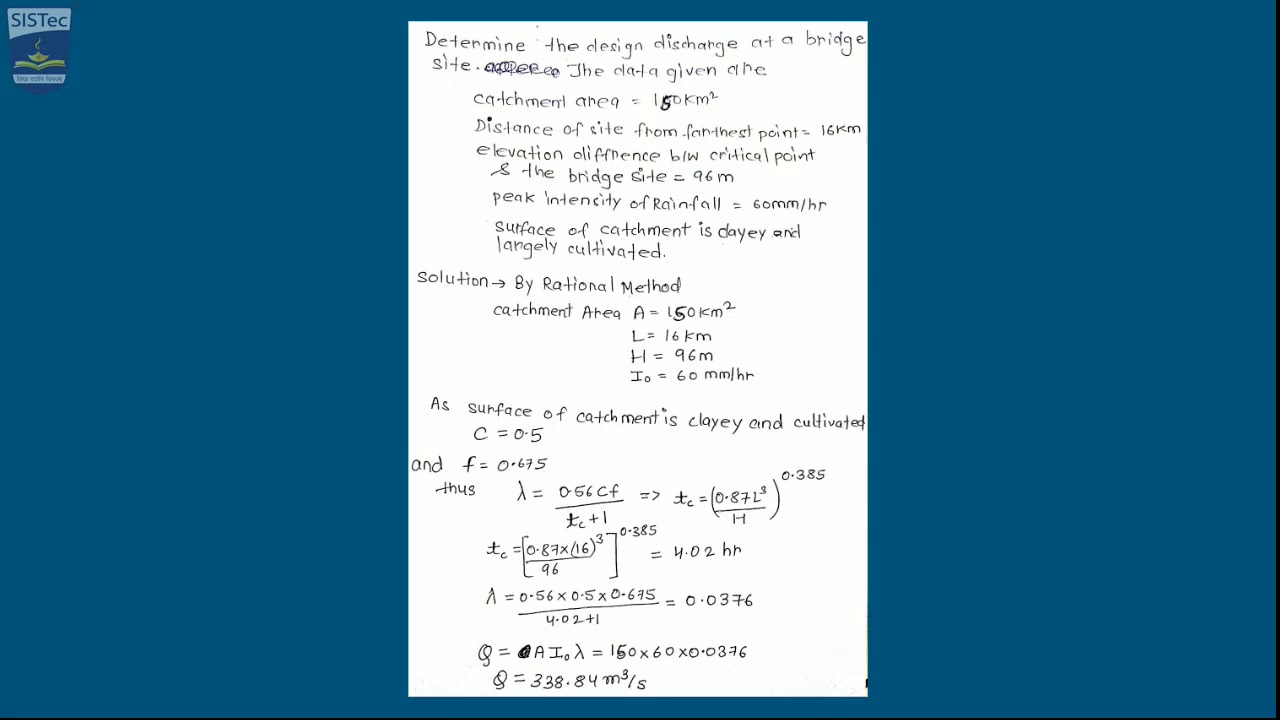 SISTec
Determine the design discharge at a bridge
site. The data given are
catchment area = 150km²
Distance of site from farthest point = 16km
elevation diffrence b/w critical point
& the bridge site = 96m
peak intensity of Rainfall = 60mm/hr
surface of catchment is clayey and
largely cultivated.
Solution → By Rational Method
catchment Area A = 150km²
L = 16 km
H = 96m
I₀ = 60 mm/hr
As surface of catchment is clayey and cultivated
C = 0.5
and f = 0.675
thus λ = 0.56Cf / tc+1 => tc = (0.87L³ / H)^0.385
tc = [0.87×(16)³ / 96]^0.385 = 4.02 hr
λ = 0.56 × 0.5 × 0.675 / 4.02+1 = 0.0376
Q = A I₀ λ = 150×60×0.0376
Q = 338.84 m³/s